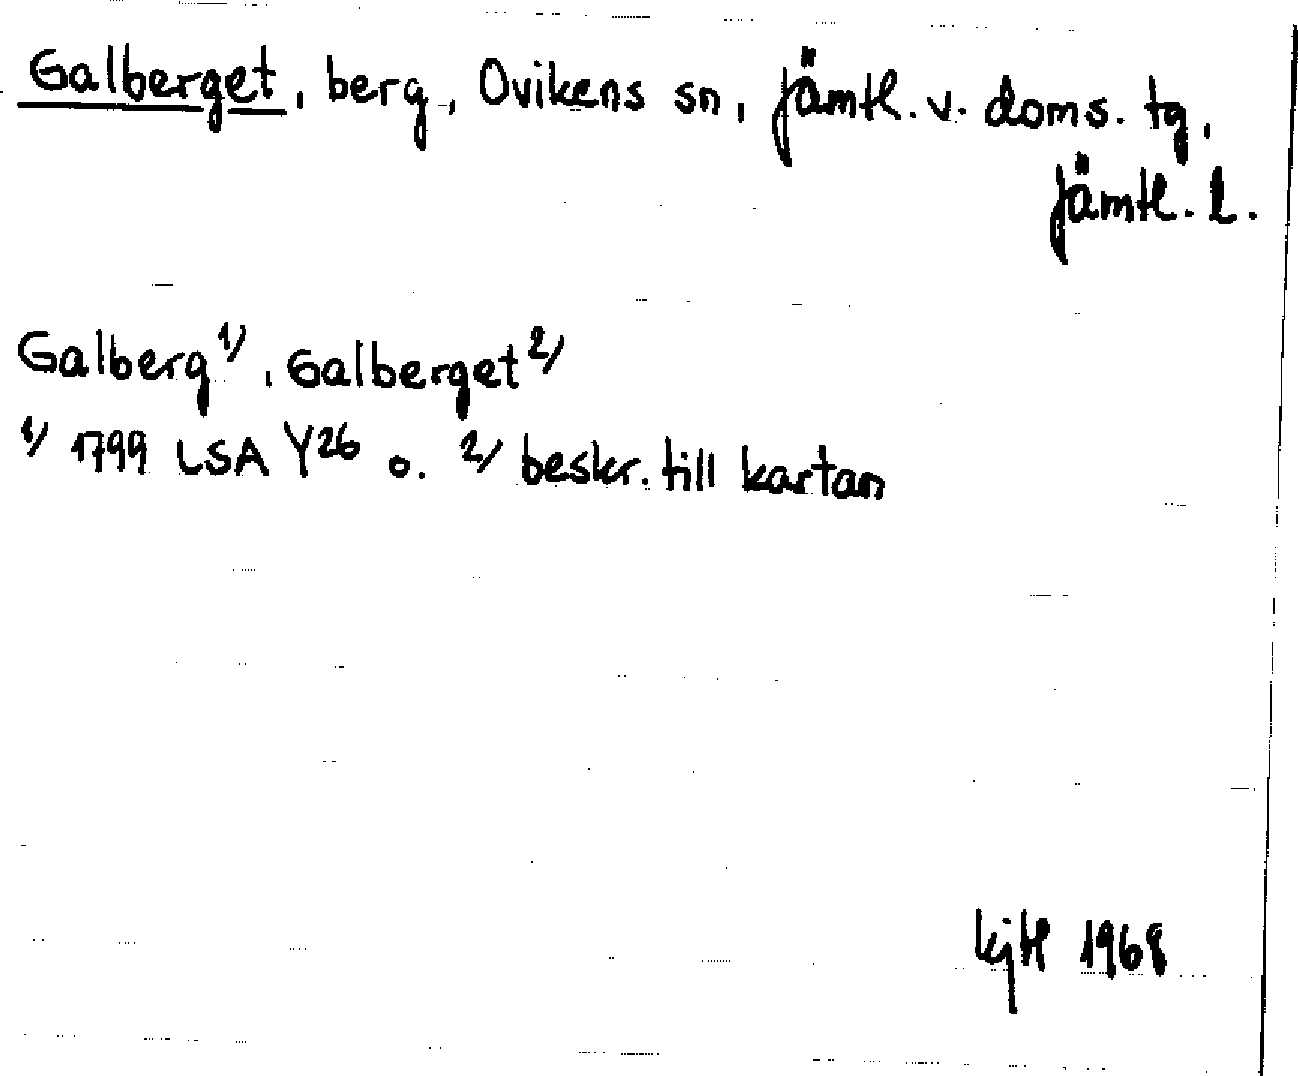 Galberget, berg, Ovikens sn, Jämtl. v. doms. tg,
Jämtl. l.
Galberg 1/, Galberget 2/
1/ 1799 LSA Y26 o. 2/ beskr. till kartan
1968